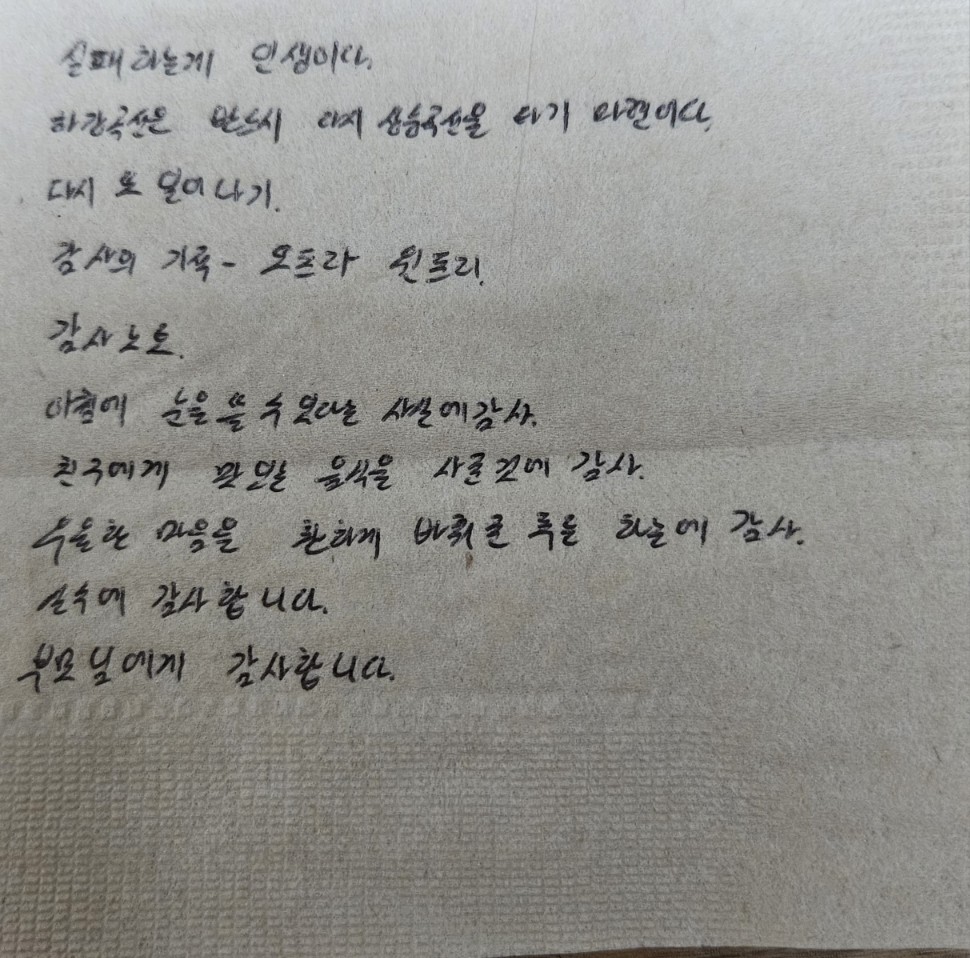 실패하는게 인생이다.
하강곡선은 반드시 다시 상승곡선을 타기 마련이다.
다시 또 일어나기.
감사의 기록- 오프라 윈프리.
감사노트.
아침에 눈을 뜰 수 있다는 사실에 감사.
친구에게 맛있는 음식을 사준것에 감사.
우울한 마음을 환하게 바꿔준 푸른 하늘에 감사.
실수에 감사합니다.
부모님에게 감사합니다.